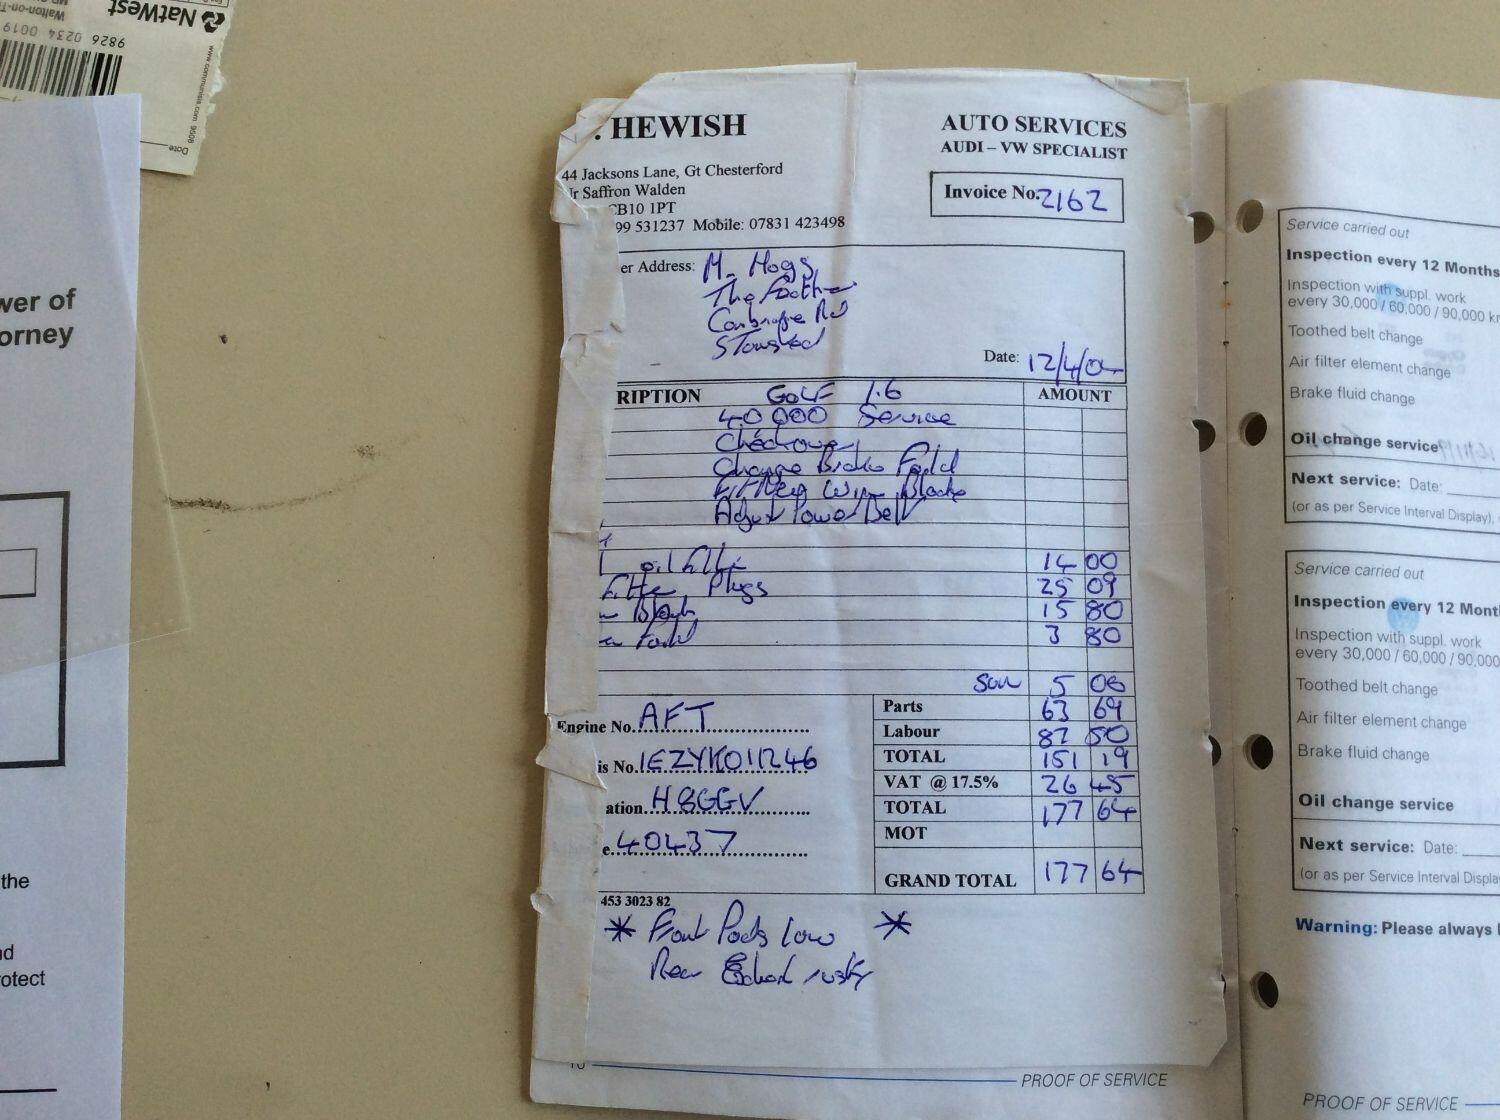 NatWest
Walton-on-T
9826 0234 0019
www.communisis.com 9508
Date
wer of
orney
the
nd
otect
. HEWISH
AUTO SERVICES
AUDI – VW SPECIALIST
44 Jacksons Lane, Gt Chesterford
Nr Saffron Walden
CB10 1PT
99 531237 Mobile: 07831 423498
Invoice No. 2162
er Address: M. Hogg
The
Rd
Date: 12/4/04
RIPTION GOLF 1.6 AMOUNT
40 000 Service
Checkover
Change Brake Fluid
Fit New Wiper Blades
Adjust Power Belt
oil filter 14 00
Filter Plugs 25 09
Blades 15 80
Fluid 3 80
Sun 5 00
Parts 63 69
Labour 87 50
TOTAL 151 19
VAT @ 17.5% 26 45
TOTAL 177 64
MOT
GRAND TOTAL 177 64
Engine No. AFT
is No.
ation. H8GGV
e. 40437
453 3023 82
* Front Pads low *
Rear Exhaust rusty
PROOF OF SERVICE
Service carried out
Inspection every 12 Months
Inspection with suppl. work
every 30,000 / 60,000 / 90,000 k
Toothed belt change
Air filter element change
Brake fluid change
Oil change service
Next service: Date:
(or as per Service Interval Display),
Service carried out
Inspection every 12 Mont
Inspection with suppl. work
every 30,000 / 60,000 / 90,000
Toothed belt change
Air filter element change
Brake fluid change
Oil change service
Next service: Date:
(or as per Service Interval Displa
Warning: Please always
PROOF OF SERVICE